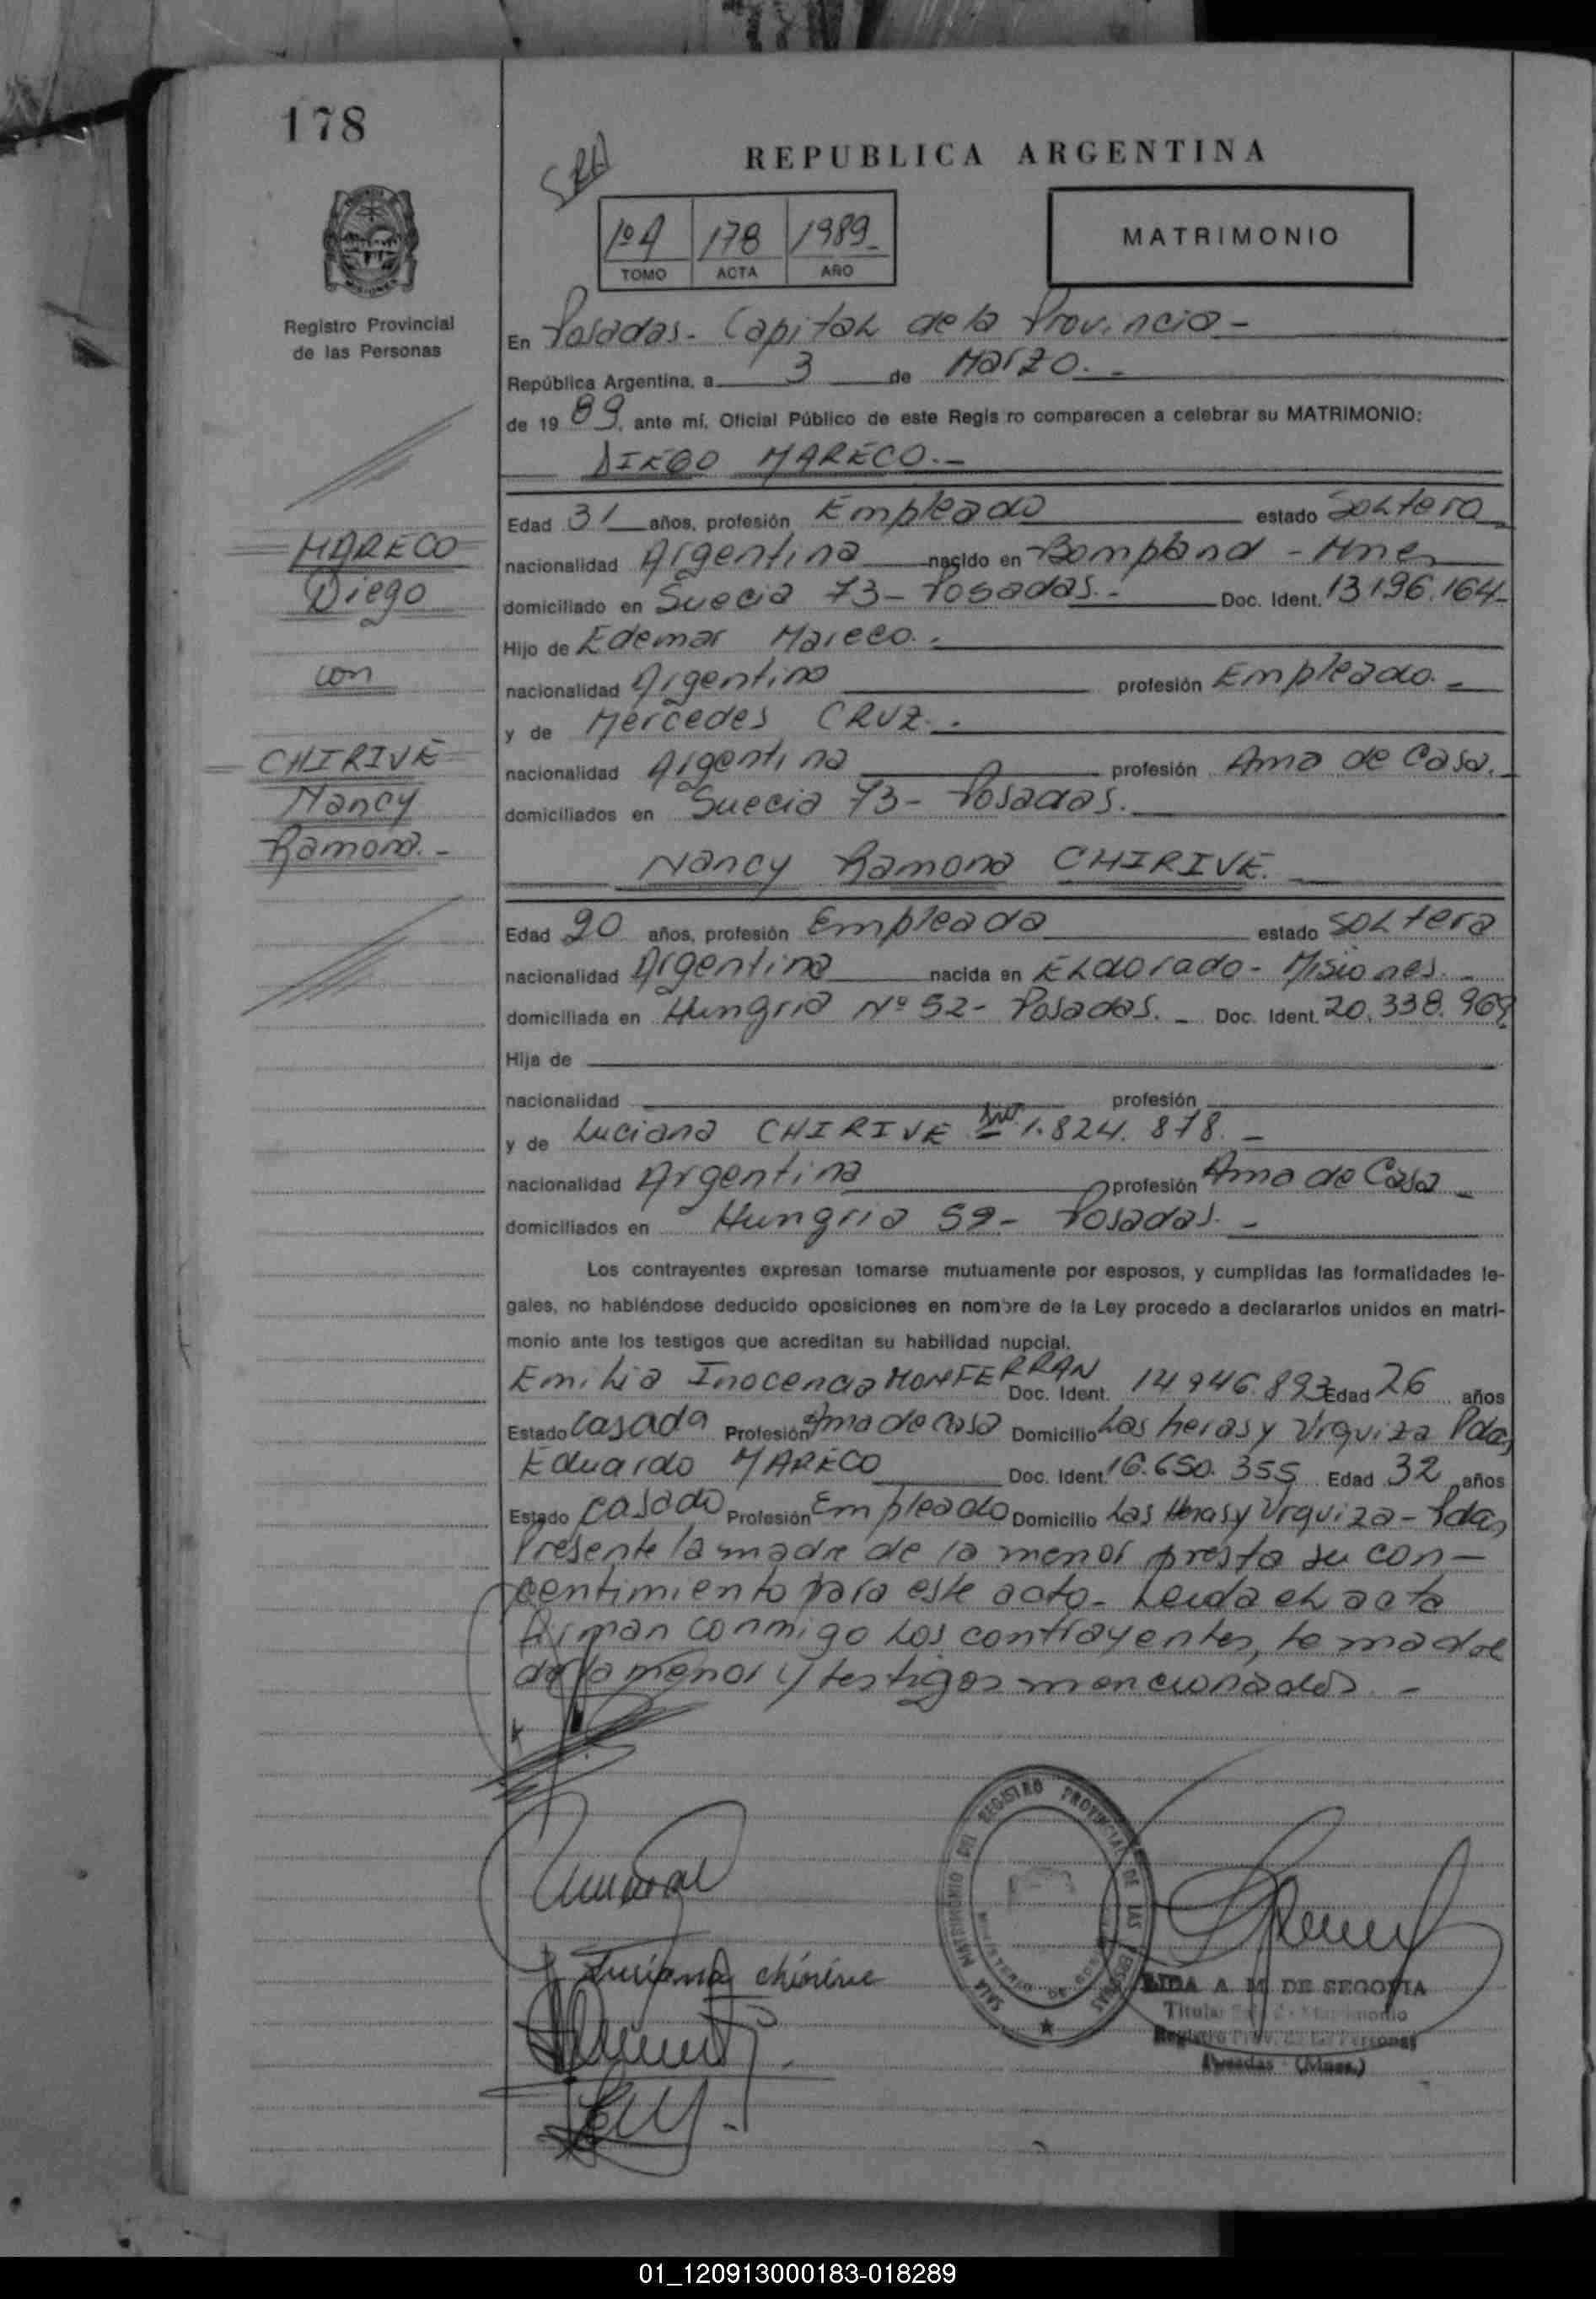 178
SRA
REPUBLICA ARGENTINA
1º A 178 1989
TOMO ACTA AÑO
MATRIMONIO
Registro Provincial
de las Personas
En Posadas - Capital de la Provincia -
República Argentina, a 3 de Marzo. -
de 1989, ante mí, Oficial Público de este Regis ro comparecen a celebrar su MATRIMONIO:
DIEGO MARECO. -
Edad 31 años, profesión Empleado estado Soltero
nacionalidad Argentina nacido en Bompland - Mnes
domiciliado en Suecia 73 - Posadas. - Doc. Ident. 13.196.164 -
Hijo de Edemar Mareco. -
nacionalidad Argentino profesión Empleado. -
y de Mercedes CRUZ. -
nacionalidad Argentina profesión Ama de Casa. -
domiciliados en Suecia 73 - Posadas.
MARECO
Diego
con
CHIRIVE
Nancy
Ramona. -
Nancy Ramona CHIRIVE.
Edad 20 años, profesión Empleada estado Soltera
nacionalidad Argentina nacida en Eldorado - Misiones. -
domiciliada en Hungria Nº 52 - Posadas. - Doc. Ident. 20.338.969
Hija de
nacionalidad profesión
y de Luciana CHIRIVE 1.824.878. -
nacionalidad Argentina profesión Ama de Casa
domiciliados en Hungria 52 - Posadas. -
Los contrayentes expresan tomarse mutuamente por esposos, y cumplidas las formalidades le-
gales, no habiéndose deducido oposiciones en nombre de la Ley procedo a declararlos unidos en matri-
monio ante los testigos que acreditan su habilidad nupcial.
Emilia Inocencia MONFERRAN Doc. Ident. 14.946.893 Edad 26 años
Estado Casada Profesión Ama de Casa Domicilio Las heras y Urquiza Pdas
Eduardo MARECO Doc. Ident. 16.650.355 Edad 32 años
Estado Casado Profesión Empleado Domicilio Las Heras y Urquiza - Pdas
Presente la madre de la menor presta su con-
centimiento para este acto - Leida el acta
firman conmigo los contrayentes, la madre
de la menor y testigos mencionados. -
Luciana chirive
SALA MATRIMONIO DEL REGISTRO PROVINCIAL DE LAS PERSONAS
MINISTERIO DE GOB
LIDA A. M. DE SEGOVIA
Titular Sala de Matrimonio
Registro Prov. de las Personas
Posadas (Mnes.)
01_120913000183-018289